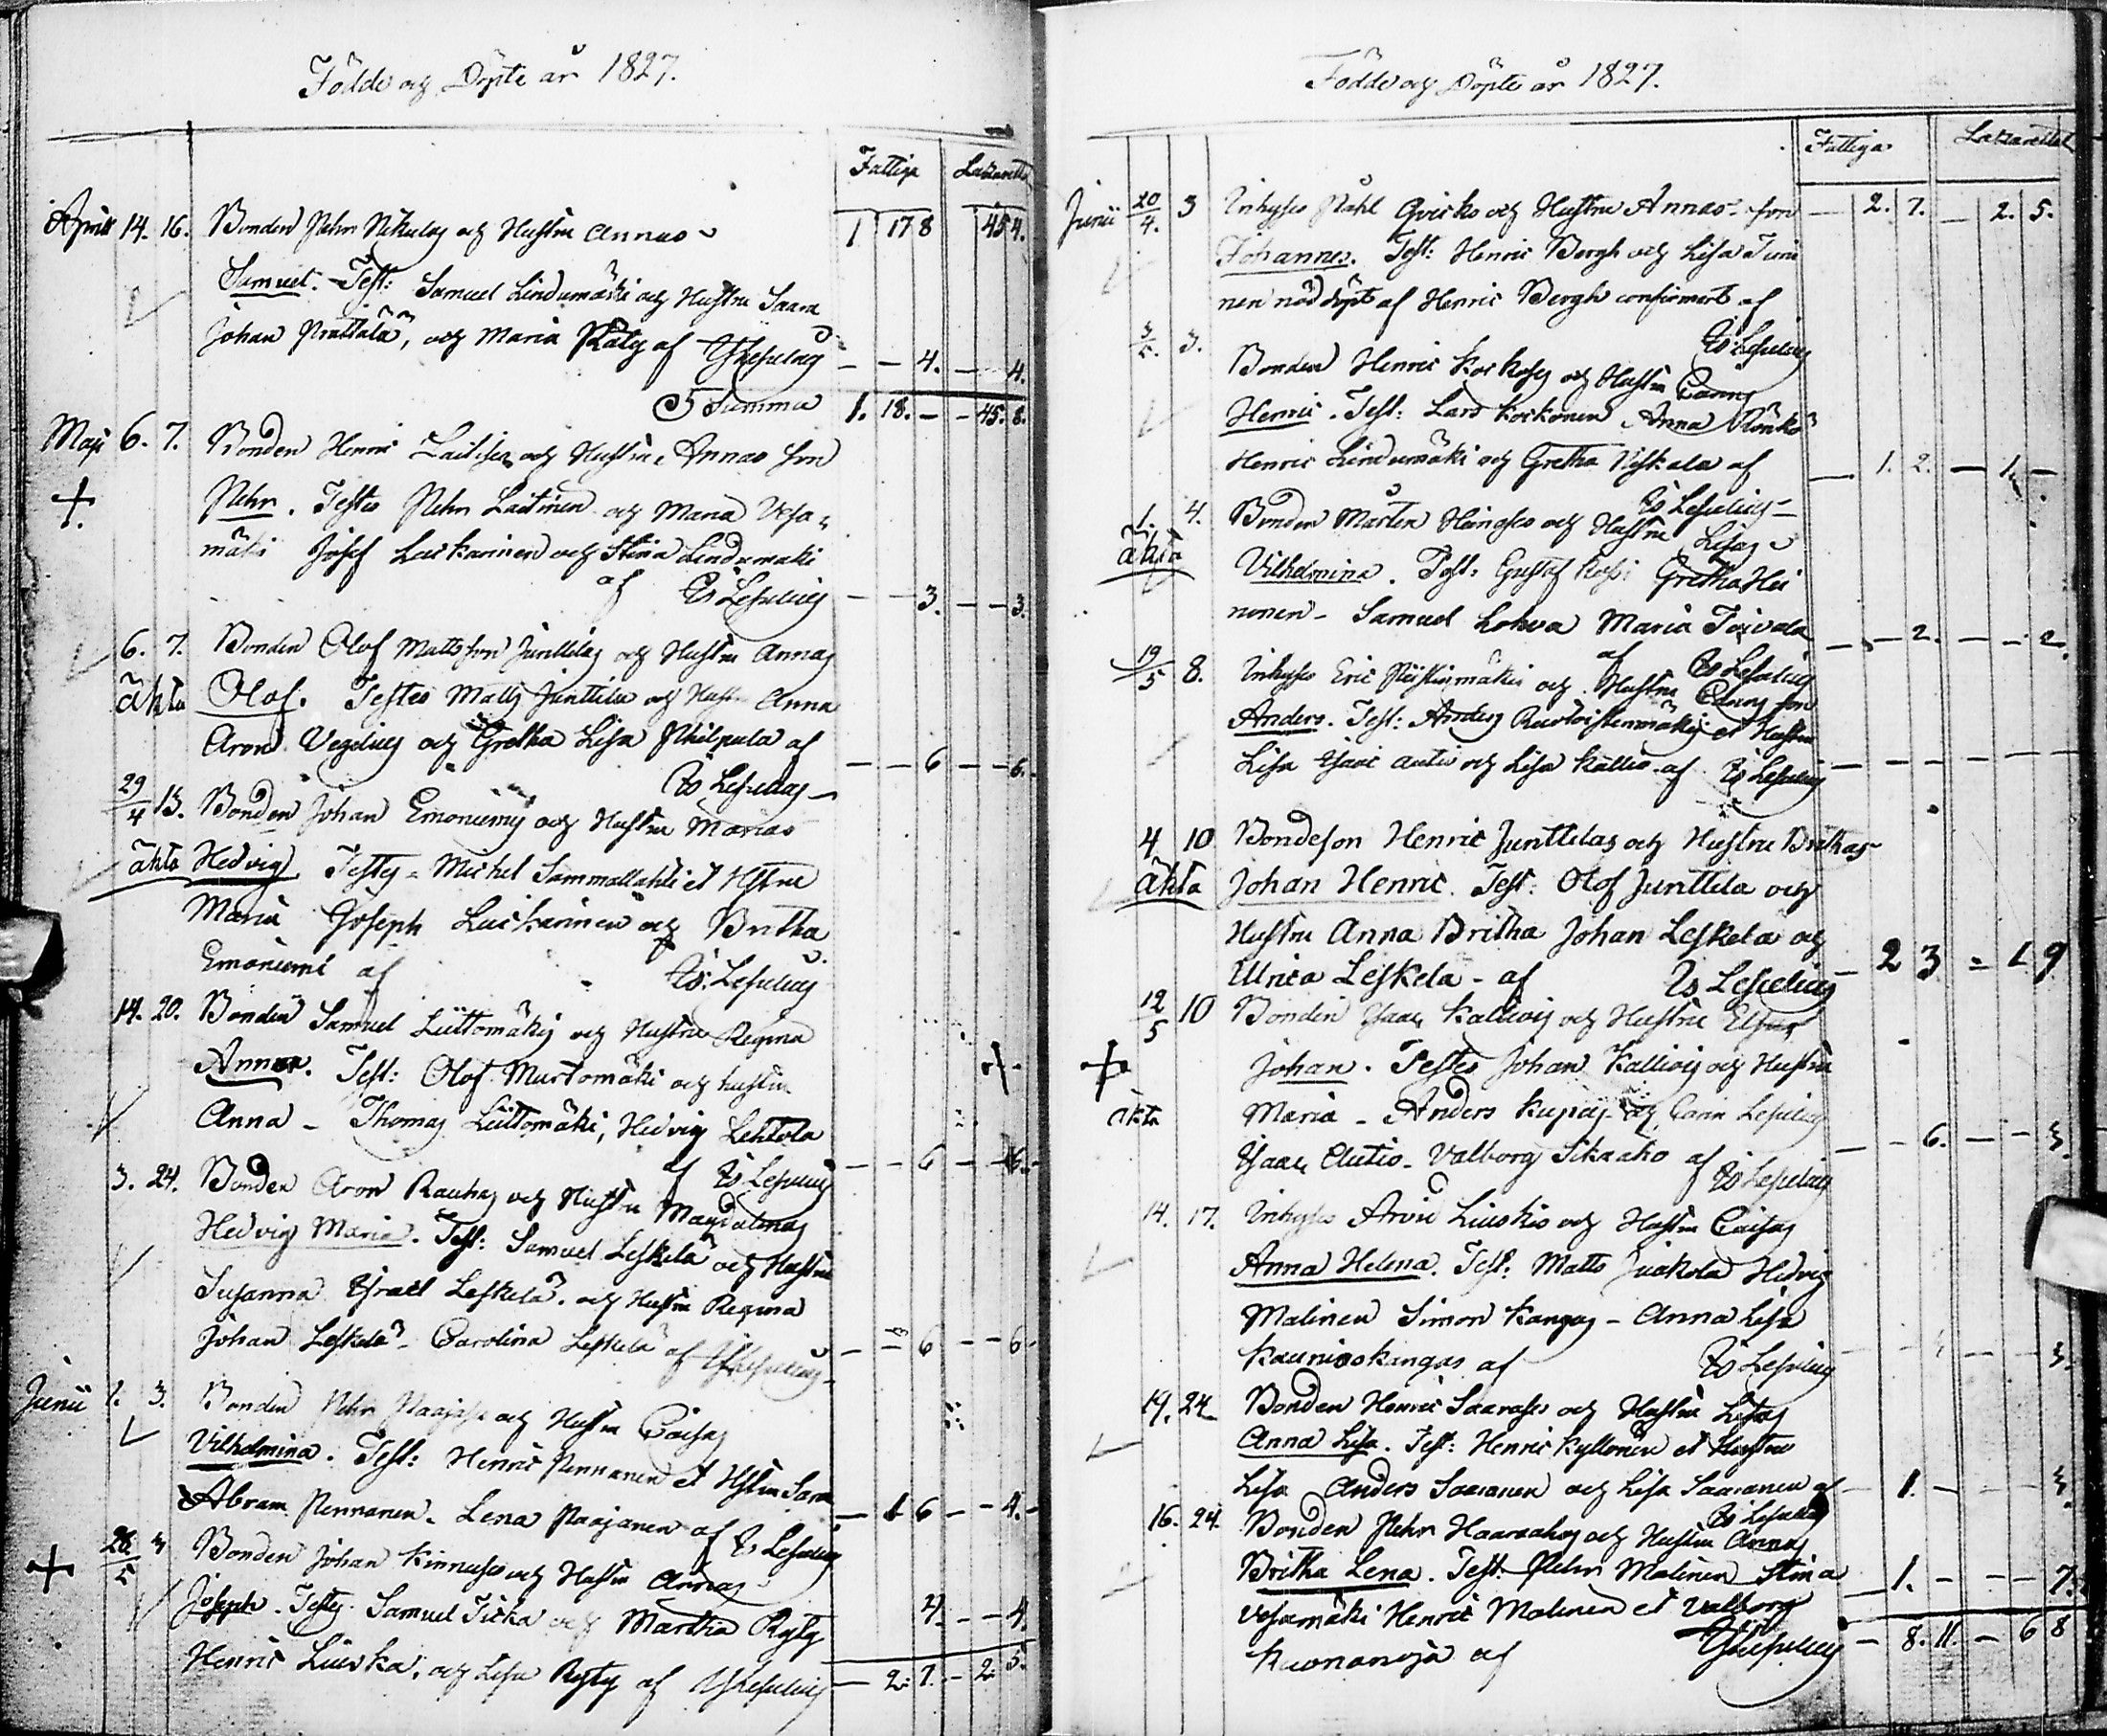 Födde og Döpte år 1827.
Fattiga Lazarettet
April 14. 16. Bonden Pehr Nikulas og Hustru Annas 1 17 8 45 4.
Samuel. Test: Samuel Lindumäki og Hustru Saara
Johan Prattala, og Maria Räty af - - 4. - 4.
Summa 1. 18. - - 45. 8.
Maji 6. 7. Bonden Henric Laitises og Hustru Annas son
Pehr. Testes Pehr Laitinen og Maria Vesa-
mäki Josef Luckarinen og Stina Lindumäki
af Es Lesselius - - 3. - - 3.
6. 7. Bonden Olof Mattsson Junttilas og Hustru Annas
äkta Olof. Testes Matts Junttila og Hustru Anna
Aron Vegelius og Gretha Lisa Philpula af - - 6 - - 6.
Es Lesselius
29/4 13. Bonden Johan Emoniemis og Hustru Marias
äkta Hedvig. Testes Michel Sammallahti et Hstru
Maria Joseph Luckarinen og Britha
Emoniemi af Es. Lesselius
14. 20. Bonden Samuel Liittomäkis og Hustru Regina
Anna. Test: Olof Murtomäki og hustru
Anna - Thomas Liittomäki, Hedvig Lehtola
af Es Lesselius - - 6 - - 6.
3. 24. Bonden Aron Rauhas og Hustru Magdalenas
Hedvig Maria. Test: Samuel Leskelä og Hustru
Susanna Israel Leskelä. og Hustru Regina
Johan Leskelä - Carolina Leskelä af - - 6 - - 6.
Junii 1. 3. Bonden Pehr Paajases og Hustru Caisas
Vilhelmina. Test: Henric Pennanen et Hstru Sara
Abram Pennanen. Lena Paajanen af Es Lesselius - 1 6 - - 4.
28/5 3 Bonden Johan Kinnuses og Hustru Annas
Joseph. Testes Samuel Ticka og Martha Rytys 4. - - 4.
Henric Liuska, og Lisa Rytys af - 2. 7. - 2. 5.
Födde og Döpte år 1827.
Fattiga Lazarettet
Junii 20/4. 3 Inhyses Påhl Qvickos og Hustru Annas son - 2. 7. - 2. 5.
Johannes. Test: Henric Bergh og Lisa Turi
nen nöddöpt af Henric Bergh confirmert af
Es Lesselius
3/5. 3. Bonden Henric Korkoses og Hustru Carins
Henric. Test: Lars Korkonen Anna Rönkö
Henric Lindumäki og Gretha Niskala af - 1. 2. - 1. -
Es Lesselius
1. 4. Bonden Mårten Hängses og Hustru Lisas
äkta Vilhelmina. Test: Gustaf Rossi Gretha Hei
nonen - Samuel Lohva Maria Toivola - - 2. - - 2.
af Es Lesselius
19/5 8. Inhyses Eric Piistinmäkis og Hustru Carins son
Anders. Test: Anders et Hustru
Lisa Isaac Autio og Lisa Kallio af Es Lesselius - - - - - -
4 10 Bondeson Henric Junttilas og Hustru Brithas
äkta Johan Henric. Test: Olof Junttila og
Hustru Anna Britha Johan Leskela og
Ulrica Leskela - af Es Lesselius - 2 3 - 1 9
12/5 10 Bonden Isaac Kallios og Hustru Elsas
Johan. Testes Johan Kallios og Hustru
äkta Maria - Anders Kupias og Carin Lesselius
Isaac Autio - Valborg Sikaaho af Es Lesselius - - 6. - - 3.
14. 17. Inhyses Arvid Liuskis og Hustru Caisas
Anna Helena. Test: Matts Juakola Hedvig
Malinen Simon Kangas - Anna Lisa
Kaunisokangas af Es Lesselius - - - - 3.
19. 24. Bonden Henric Saarases og Hustru Lisas
Anna Lisa. Test: Henric Kyllönen et Hustru
Lisa Anders Saaranen og Lisa Saaranen af - 1. - - - 3.
Es Lesselius
16. 24. Bonden Pehr Haaraahos og Hustru Annas
Britha Lena. Test. Pehr Malinen Stina - 1. - - - 7.
Vesamäki Henric Malinen et Valborg
Kuonanoja af - 8. 11. - 6 8